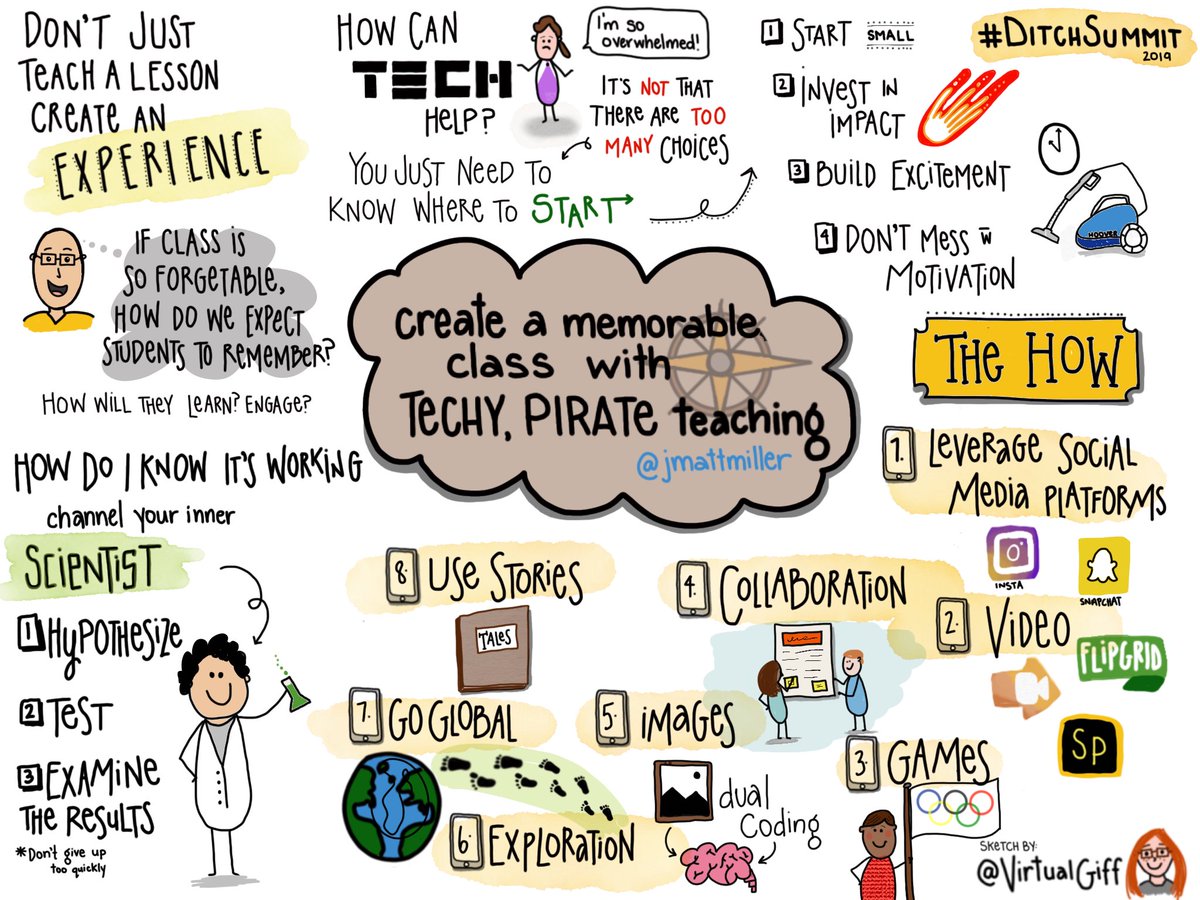 DON'T JUST
TEACH A LESSON
CREATE AN
EXPERIENCE
IF CLASS IS
SO FORGETABLE,
HOW DO WE EXPECT
STUDENTS TO REMEMBER?
HOW WILL THEY LEARN? ENGAGE?
HOW DO I KNOW IT'S WORKING
channel your inner
SCIENTIST
1 HYPOTHESIZE
2 TEST
3 EXAMINE
THE RESULTS
*Don't give up
too quickly
HOW CAN
TECH
HELP?
I'm so
overwhelmed!
IT'S NOT THAT
THERE ARE TOO
MANY CHOICES
YOU JUST NEED TO
KNOW WHERE TO START
1 START SMALL
2 INVEST IN
IMPACT
3 BUILD EXCITEMENT
4 DON'T MESS W
MOTIVATION
HOOVER
#DITCHSUMMIT
2019
create a memorable
class with
TECHY, PIRATE teaching
@jmattmiller
THE HOW
1. LEVERAGE SOCIAL
MEDIA PLATFORMS
INSTA
SNAPCHAT
2. VIDEO
FLIPGRID
Sp
3. GAMES
4. COLLABORATION
5. IMAGES
dual
Coding
6. EXPLORATION
7. GO GLOBAL
8 USE STORIES
TALES
SKETCH BY:
@VIRTUALGIFF